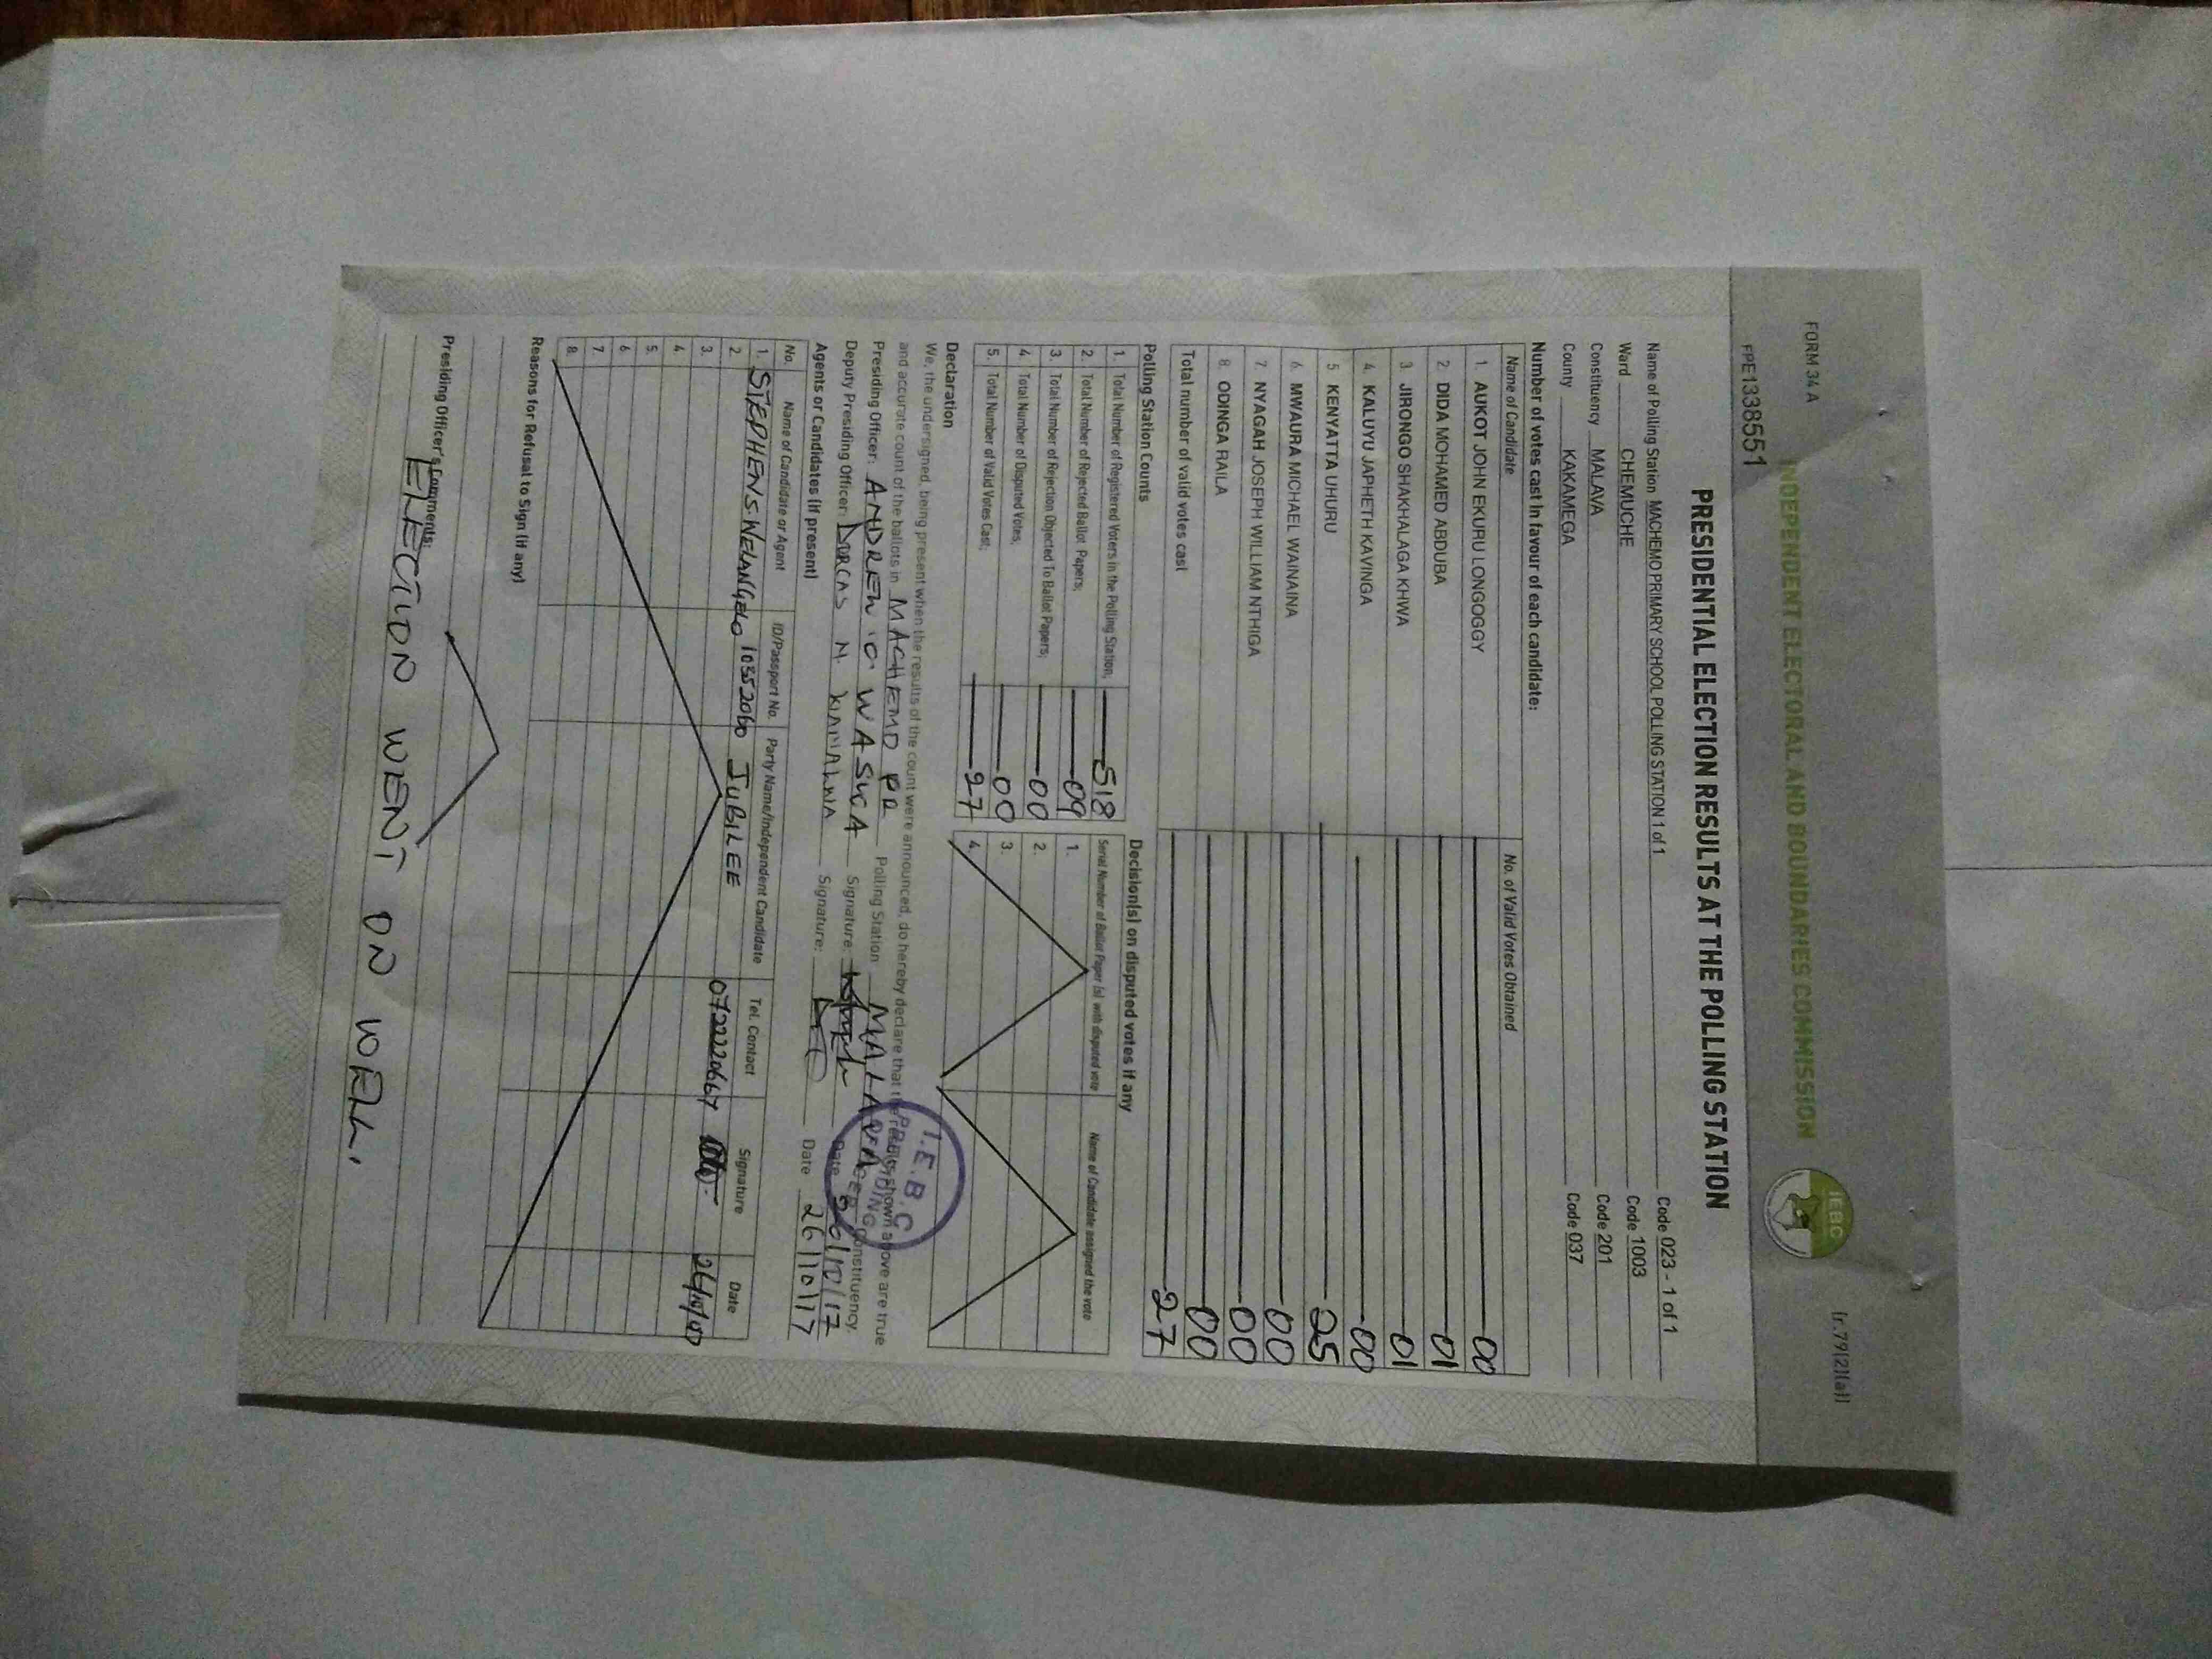 FORM 34 A
(r.79(2)(a))
INDEPENDENT ELECTORAL AND BOUNDARIES COMMISSION
IEBC
FPE1338551
PRESIDENTIAL ELECTION RESULTS AT THE POLLING STATION
Name of Polling Station MACHEMO PRIMARY SCHOOL POLLING STATION 1 of 1 Code 023 - 1 of 1
Ward CHEMUCHE Code 1003
Constituency MALAVA Code 201
County KAKAMEGA Code 037
Number of votes cast in favour of each candidate:
Name of Candidate No. of Valid Votes Obtained
1. AUKOT JOHN EKURU LONGOGGY 00
2 DIDA MOHAMED ABDUBA 01
3 JIRONGO SHAKHALAGA KHWA 01
4. KALUYU JAPHETH KAVINGA 00
5 KENYATTA UHURU 25
6. MWAURA MICHAEL WAINAINA 00
7 NYAGAH JOSEPH WILLIAM NTHIGA 00
8. ODINGA RAILA 00
Total number of valid votes cast 27
Polling Station Counts
1. Total Number of Registered Voters in the Polling Station; 518
2. Total Number of Rejected Ballot Papers; 09
3. Total Number of Rejection Objected To Ballot Papers; 00
4 Total Number of Disputed Votes; 00
5. Total Number of Valid Votes Cast; 27
Decision(s) on disputed votes if any
Serial Number of Ballot Paper (s) with disputed vote Name of Candidate assigned the vote
1.
2.
3.
4.
Declaration
We, the undersigned, being present when the results of the count were announced, do hereby declare that the results shown above are true
and accurate count of the ballots in MACHEMO PR Polling Station MALAVA Constituency.
Presiding Officer: ANDREW O. WASWA Signature: Date 26/10/17
Deputy Presiding Officer: DORCAS N. Signature: Date 26/10/17
I.E.B.C
PRESIDING
OFFICER
Agents or Candidates (if present)
No. Name of Candidate or Agent ID/Passport No. Party Name/Independent Candidate Tel. Contact Signature Date
1. STEPHEN S. WELANGELO 10552060 JUBILEE 0722220667 26/10/17
2.
3.
4
5.
6
7.
8.
Reasons for Refusal to Sign (if any)
Presiding Officer's Comments:
ELECTION WENT ON WELL.